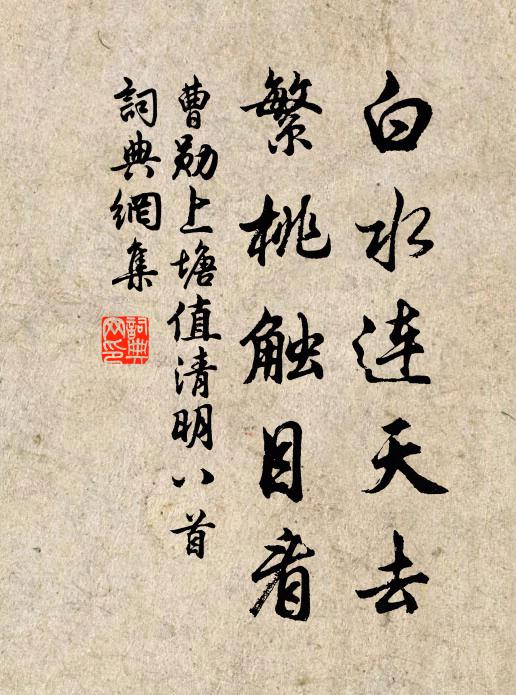 白水连天去
繁桃触目看
曹勋上塘值清明八首
詞典網集
詞典网印